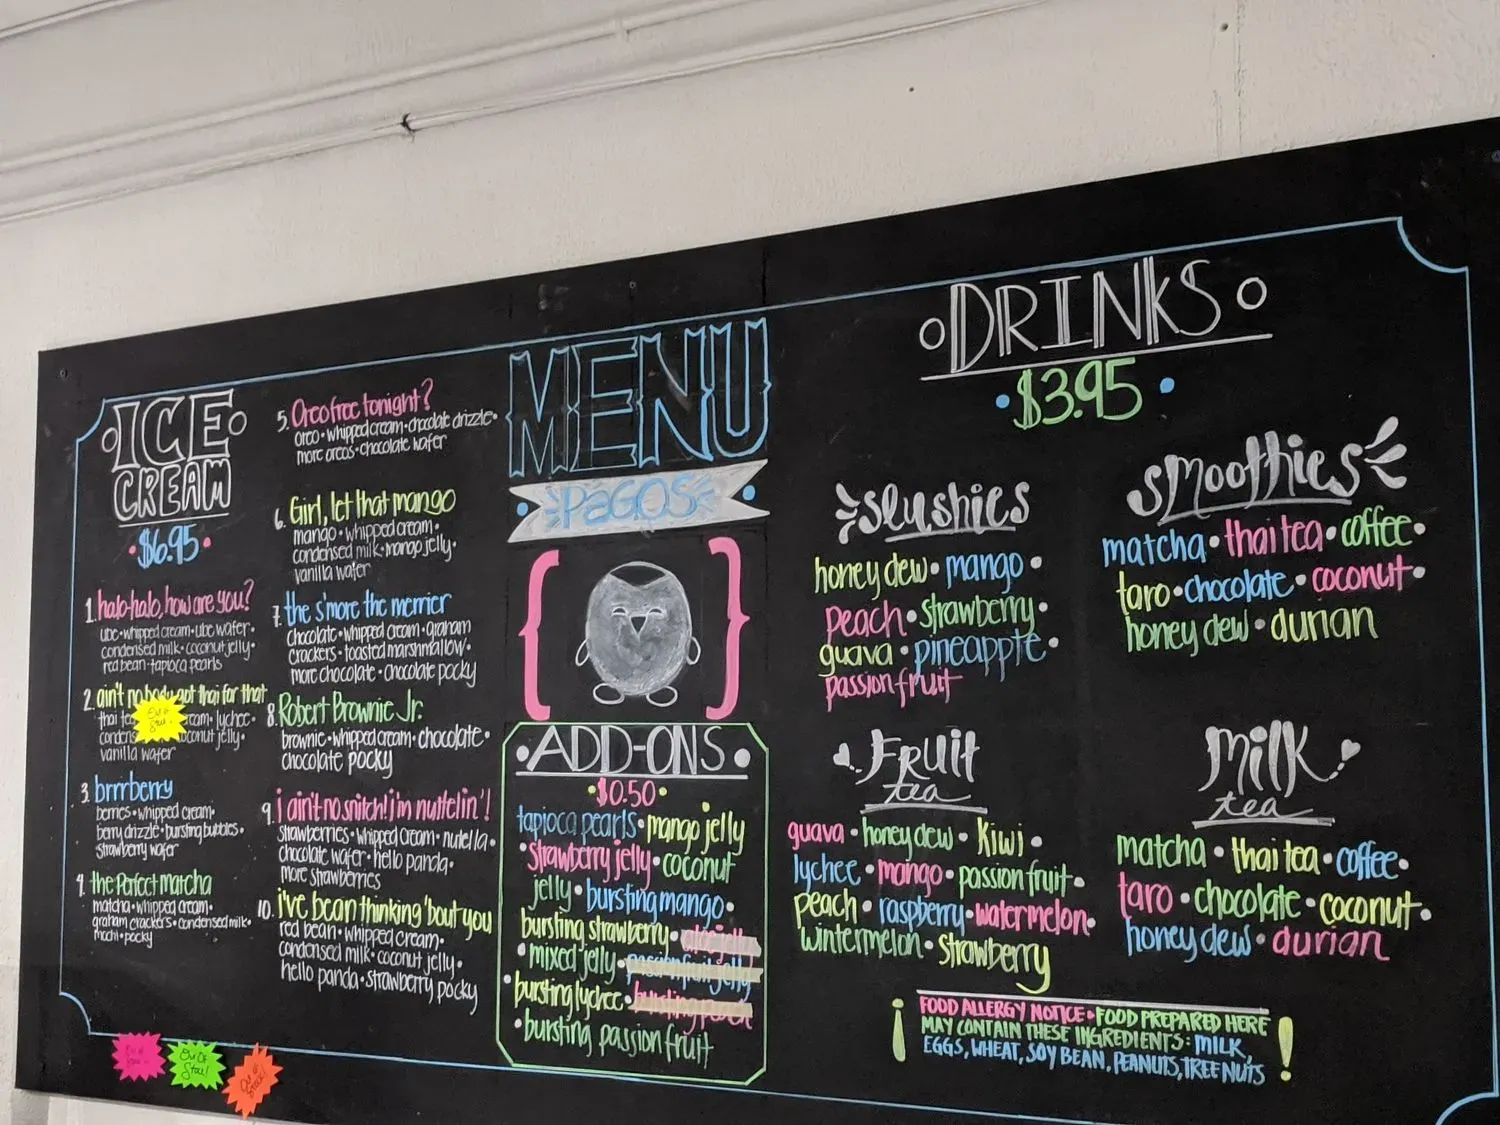 ICE
CREAM
$6.95
1. halo-halo, how are you?
ube • whipped cream • ube wafer •
condensed milk • coconut jelly •
red bean • tapioca pearls
2. ain't nobody got thai for that
thai cream • lychee •
coconut jelly •
vanilla wafer
3. brrrberry
berries • whipped cream •
berry drizzle • bursting bubbles •
strawberry wafer
4. the Perfect matcha
matcha • whipped cream •
graham crackers • condensed milk •
mochi • pocky
5. Oreo free tonight?
oreo • whipped cream • chocolate drizzle •
more oreos • chocolate wafer
6. Girl, let that mango
mango • whipped cream •
condensed milk • mango jelly •
vanilla wafer
7. the s'more the merrier
chocolate • whipped cream • graham
crackers • toasted marshmallow •
more chocolate • chocolate pocky
8. Robert Brownie Jr.
brownie • whipped cream • chocolate •
chocolate pocky
9. i ain't no snitch! i'm nuttelin'!
strawberries • whipped cream • nutella •
chocolate wafer • hello panda •
more strawberries
10. i've bean thinking 'bout you
red bean • whipped cream •
condensed milk • coconut jelly •
hello panda • strawberry pocky
Out of
Stock!
MENU
PAGOS
ADD-ONS
• $0.50 •
tapioca pearls • mango jelly
• strawberry jelly • coconut
jelly • bursting mango •
bursting strawberry •
• mixed jelly • passionfruit jelly
• bursting lychee • bursting peach
• bursting passion fruit
DRINKS
• $3.95 •
slushies
honey dew • mango •
peach • strawberry •
guava • pineapple •
passion fruit
smoothies
matcha • thai tea • coffee •
taro • chocolate • coconut •
honey dew • durian
Fruit
tea
guava • honey dew • kiwi •
lychee • mango • passion fruit •
peach • raspberry • watermelon •
wintermelon • strawberry
Milk
tea
matcha • thai tea • coffee •
taro • chocolate • coconut •
honey dew • durian
FOOD ALLERGY NOTICE • FOOD PREPARED HERE
MAY CONTAIN THESE INGREDIENTS: MILK,
EGGS, WHEAT, SOY BEAN, PEANUTS, TREE NUTS
Out of
Stock!
Out of
Stock!